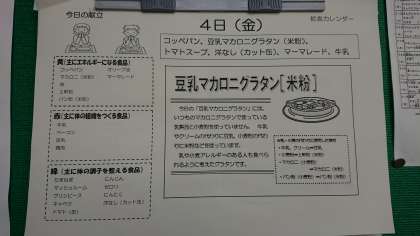 今日の献立
給食カレンダー
4日（金）
コッペパン、豆乳マカロニグラタン（米粉）、
トマトスープ、洋なし（カット缶）、マーマレード、牛乳
黄（主にエネルギーになる食品）
コッペパン　オリーブ油
マカロニ（米粉）　マーマレード
油
上新粉
パン粉（米粉）
赤（主に体の組織をつくる食品）
牛乳
ベーコン
豆乳
緑（主に体の調子を整える食品）
たまねぎ　にんじん
マッシュルーム　セロリ
グリンピース　にんにく
キャベツ　洋なし（カット缶）
トマト（缶）
豆乳マカロニグラタン[米粉]
今日の「豆乳マカロニグラタン」には、
いつものマカロニグラタンで使っている
乳製品と小麦粉を使っていません。牛乳
やクリームの代わりに豆乳、小麦粉の代わ
りに米粉などを使っています。
乳や小麦アレルギーのある人も食べら
れるように考えたグラタンです。
・牛乳、クリーム⇒豆乳